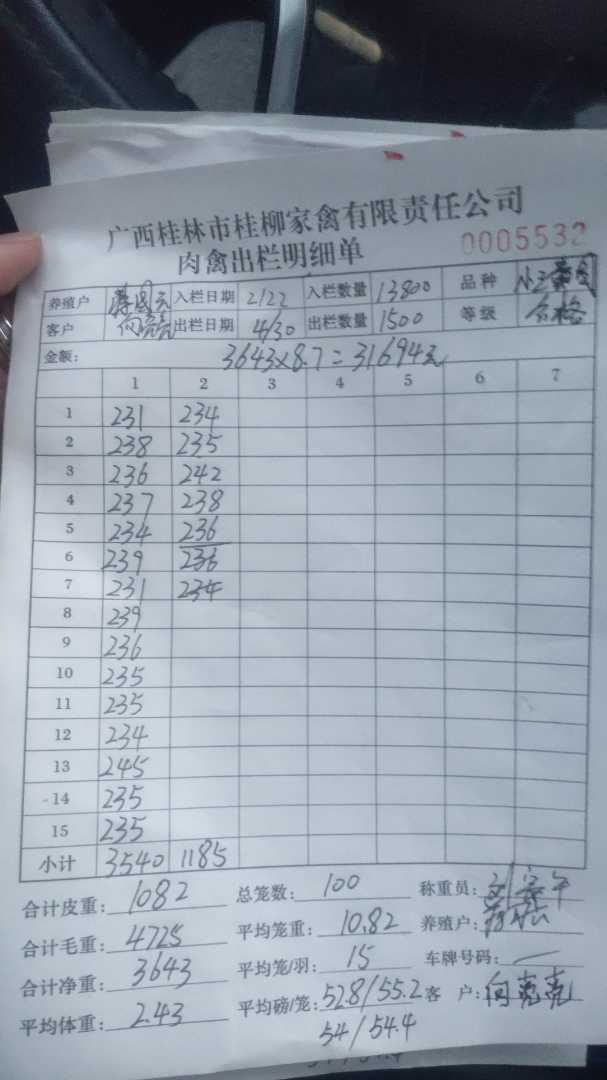 广西桂林市桂柳家禽有限责任公司
肉禽出栏明细单 0005532
养殖户 入栏日期 2/22 入栏数量 13800 品种
客户 向亮亮 出栏日期 4/30 出栏数量 1500 等级 合格
金额: 3643×8.7=31694元
1 2 3 4 5 6 7
1 231 234
2 238 235
3 236 242
4 237 238
5 234 236
6 239 236
7 231 234
8 239
9 236
10 235
11 235
12 234
13 245
14 235
15 235
小计 3540 1185
合计皮重: 1082 总笼数: 100 称重员:
合计毛重: 4725 平均笼重: 10.82 养殖户:
合计净重: 3643 平均笼/羽: 15 车牌号码: —
平均体重: 2.43 平均磅/笼: 52.8/55.2 客 户: 向亮亮
54/54.4